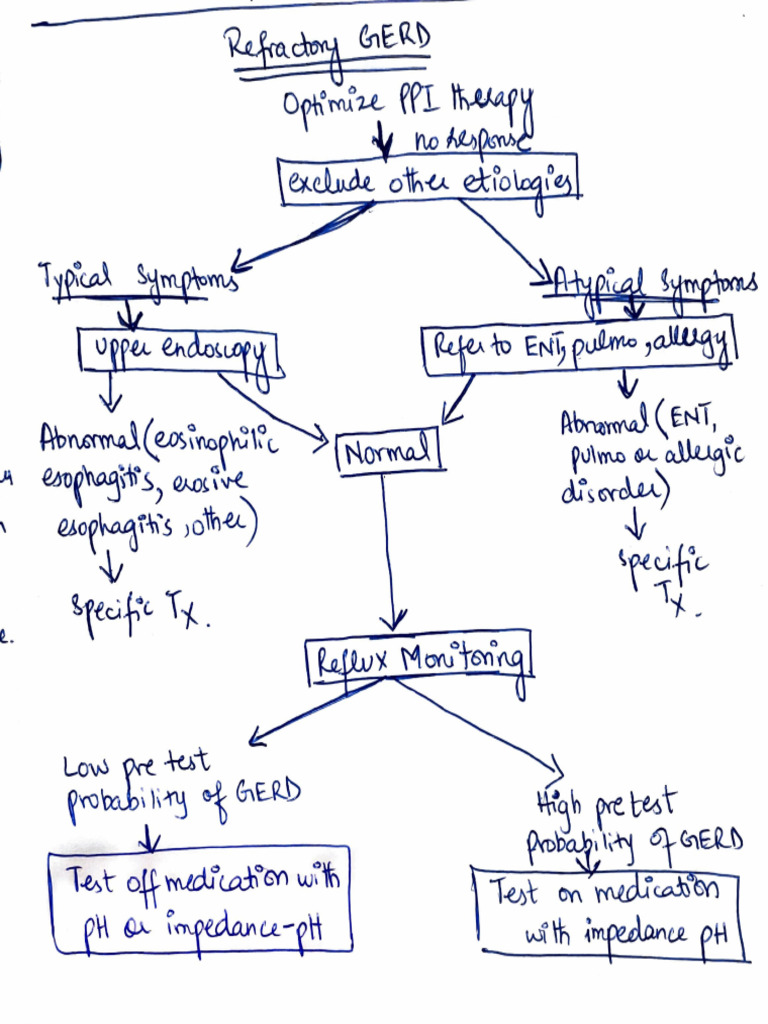 Refractory GERD
Optimize PPI therapy
no response
exclude other etiologies
Typical Symptoms
Atypical Symptoms
Upper endoscopy
Refer to ENT, pulmo, allergy
Abnormal (eosinophilic
esophagitis, erosive
esophagitis, other)
Specific Tx.
Normal
Abnormal (ENT,
pulmo or allergic
disorder)
Specific
Tx.
Reflux Monitoring
Low pre test
probability of GERD
Test off medication with
pH or impedance-pH
High pretest
Probability of GERD
Test on medication
with impedance pH
e.